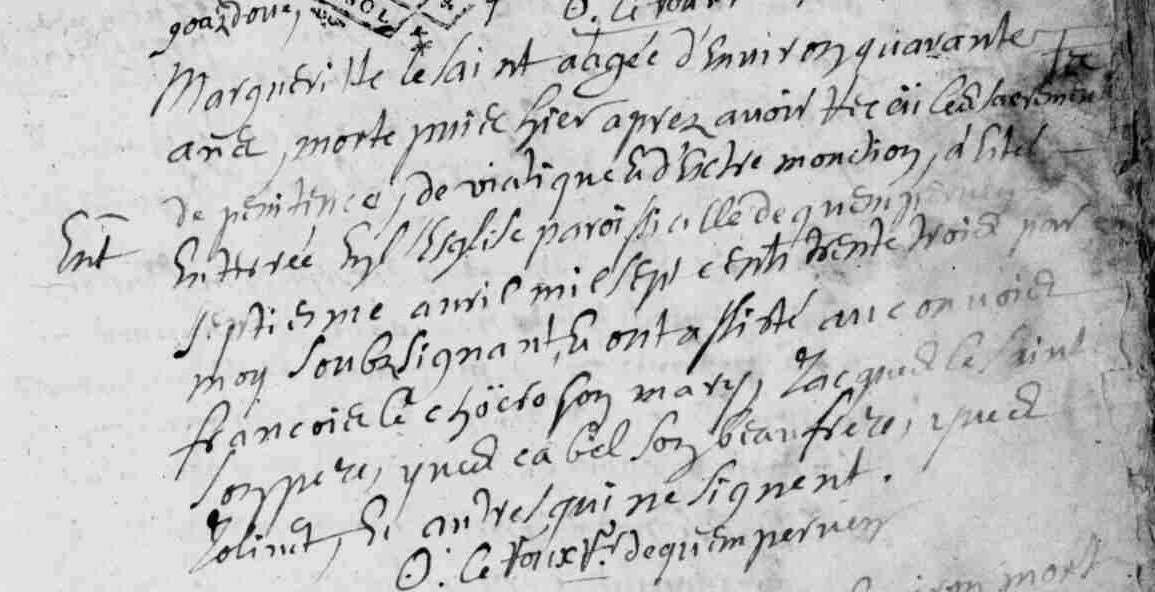 goazdoue,
O. Le roux
Margueritte le saint aagée d'Environ quarante
ans, morte puis hier aprez avoir receü les sacrements
de penitence, de viatique & d'Extre monction, a Esté
Ent Enterrée En l'Esglise paroissialle de quemperven
septiesme avril mil sept cents trente trois par
moy soubzsignant, & ont assisté au convoiet
francois le choero son mary, Jacques le saint
son pere, yves cabel son beaufrere, yves
Jolivet, & autres qui ne signent.
O. Le roux Vr. de quemperven
Environ mort